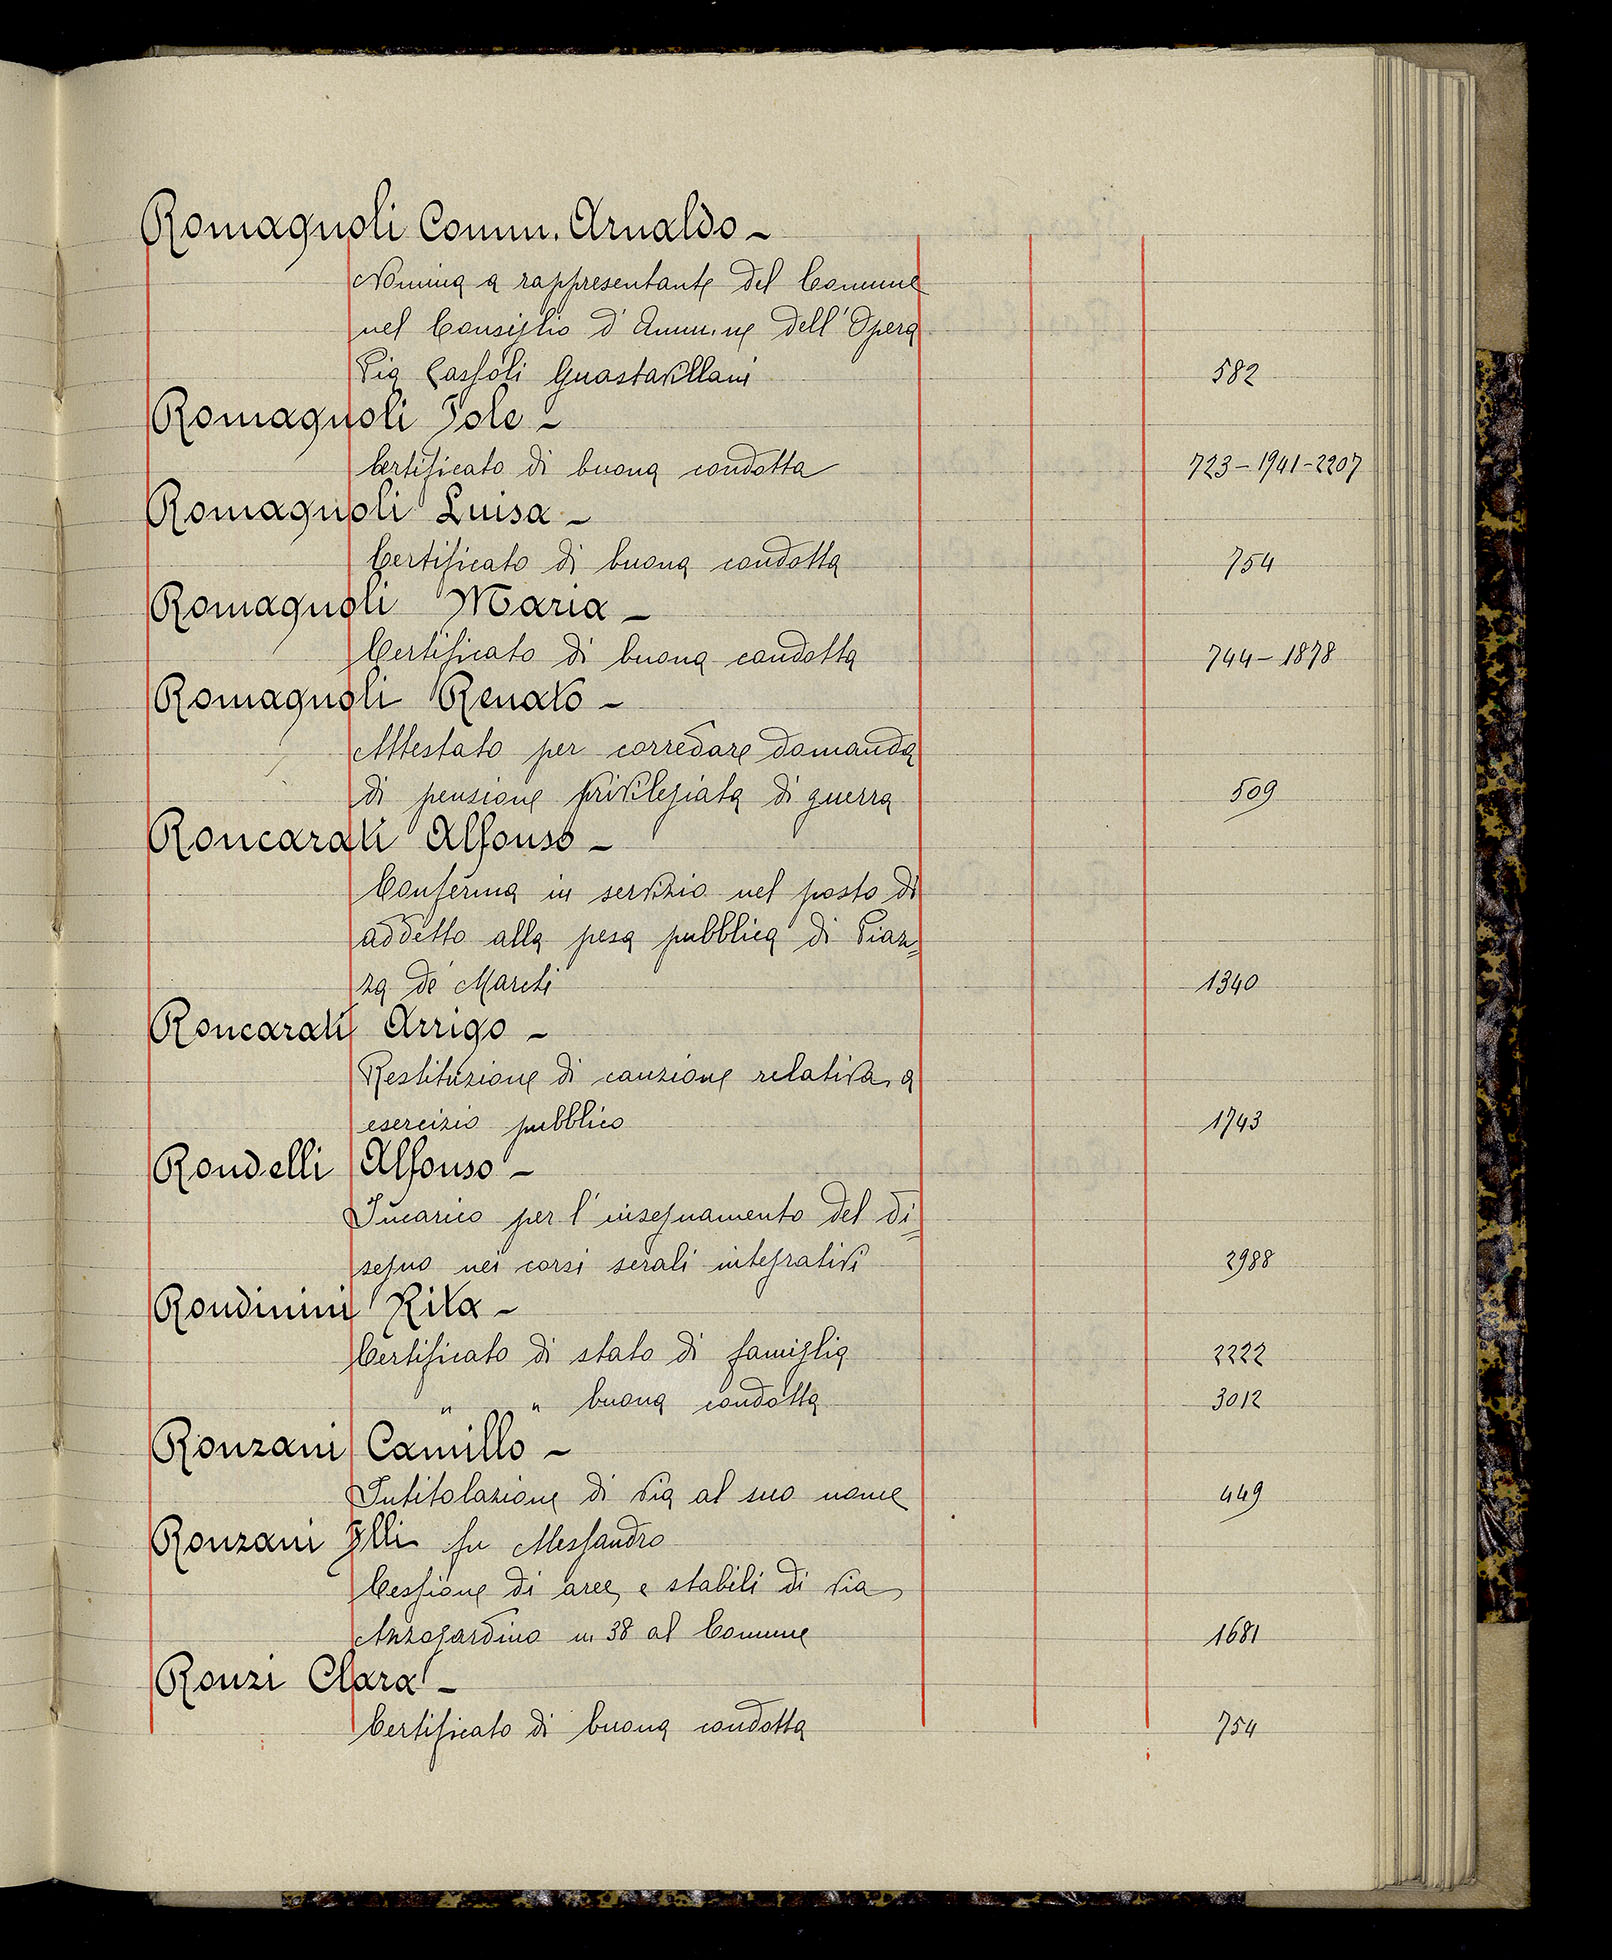 Romagnoli Comm. Arnaldo -
Nomina a rappresentante del Comune
nel Consiglio d'Amm.ne dell'Opera
Pia Gassoli Guastavillani 582
Romagnoli Iole -
Certificato di buona condotta 723-1941-2207
Romagnoli Luisa -
Certificato di buona condotta 754
Romagnoli Maria -
Certificato di buona condotta 744-1878
Romagnoli Renato -
Attestato per corredare domanda
di pensione privilegiata di guerra 509
Roncarati Alfonso -
Conferma in servizio nel posto di
addetto alla pesa pubblica di Piaz=
za de' Marchi 1340
Roncarati Arrigo -
Restituzione di cauzione relativa a
esercizio pubblico 1743
Rondelli Alfonso -
Incarico per l'insegnamento del di=
segno nei corsi serali integrativi 2988
Rondinini Rita -
Certificato di stato di famiglia 2222
" " buona condotta 3012
Ronzani Camillo -
Intitolazione di via al suo nome 449
Ronzani Flli fu Alessandro
Cessione di aree e stabili di via
Anzogardino n. 38 al Comune 1681
Ronzi Clara -
Certificato di buona condotta 754